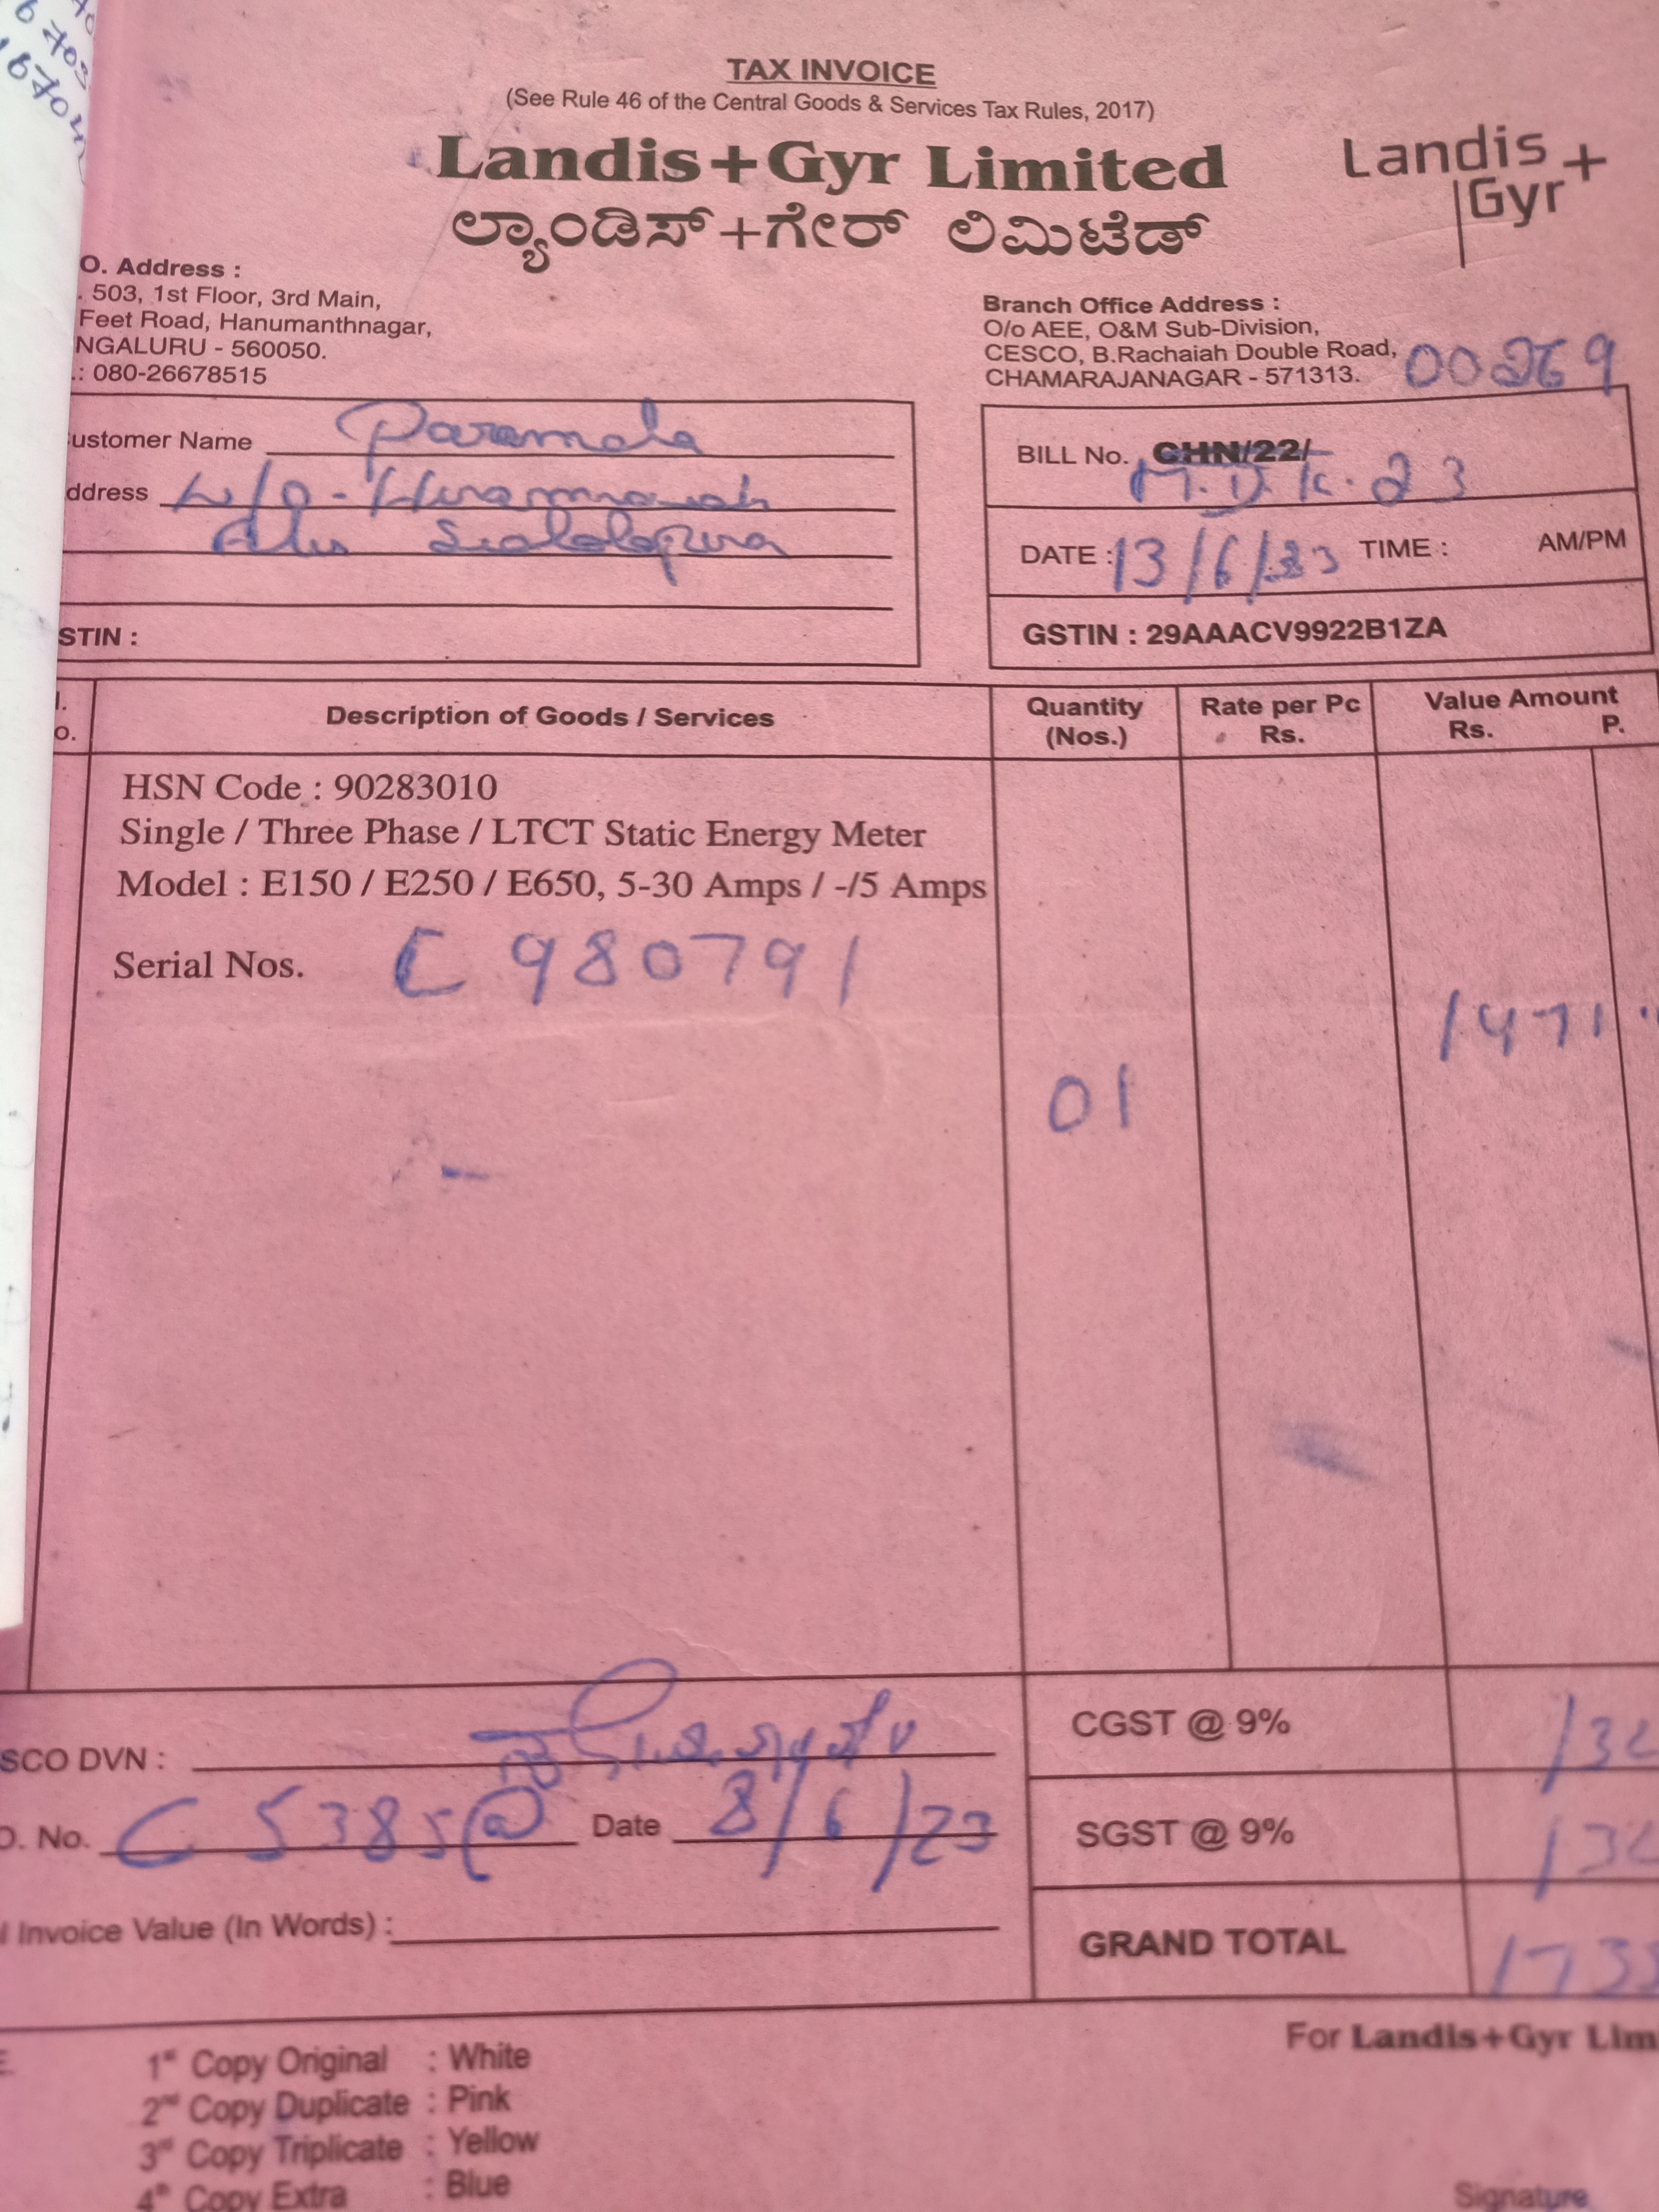 TAX INVOICE
(See Rule 46 of the Central Goods & Services Tax Rules, 2017)
Landis+Gyr Limited
Landis+
Gyr
ಲ್ಯಾಂಡಿಸ್+ಗೇರ್ ಲಿಮಿಟೆಡ್
O. Address :
. 503, 1st Floor, 3rd Main,
Feet Road, Hanumanthnagar,
NGALURU - 560050.
.: 080-26678515
Branch Office Address :
O/o AEE, O&M Sub-Division,
CESCO, B.Rachaiah Double Road,
CHAMARAJANAGAR - 571313.
00269
ustomer Name Paramala
ddress w/o -
STIN :
BILL No. CHN/22/
M.D.K. 23
DATE : 13/6/23 TIME : AM/PM
GSTIN : 29AAACV9922B1ZA
l.
o.
Description of Goods / Services
Quantity
(Nos.)
Rate per Pc
Rs.
Value Amount
Rs. P.
HSN Code : 90283010
Single / Three Phase / LTCT Static Energy Meter
Model : E150 / E250 / E650, 5-30 Amps / -/5 Amps
Serial Nos. C 980791
1471
01
SCO DVN :
O. No. C 5385 Date 8/6/23
l Invoice Value (In Words) :
CGST @ 9% 132
SGST @ 9% 132
GRAND TOTAL 173
For Landis+Gyr Lim
E.
1st Copy Original : White
2nd Copy Duplicate : Pink
3rd Copy Triplicate : Yellow
4th Copy Extra : Blue
Signature